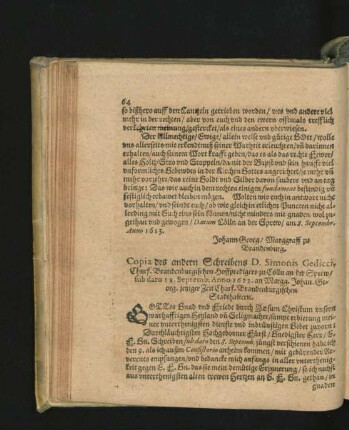 64
so bißhero auff den Cantzeln getrieben worden / vns vnd andere viel
mehr in der rechten / aber von euch vnd den ewern offtmals trefflich
verkehrten meinung / gestercket / als eines andern vberwiesen.
Der Allmechtige / Ewige / allein weise vnd gütige Gott / wolle
vns allerseits mit erkendtnuß seiner Warheit erleuchten / vñ darinnen
erhalten / auch seinem Wort krafft geben / das es als das rechte Fewer /
alles Holtz / Stro vnd Stoppeln / da mit der Bapst vnd sein hauffe viel
vnförmliches Gebewdes in der Kirchen Gottes angerichtet / je mehr vñ
mehr vorzehre / das reine Gold vnd Silber davon säubere vnd an tag
bringe: Das wir auch in dem rechten einigen fundament bestendig vñ
festiglich erbawet bleiben mögen. Wolten wir euch in antwort nicht
vorhalten / vnd seind euch / do wir gleich in etlichen Puncten nicht al-
lerding mit Euch eins sein können / nichts minders mit gnaden wol zu-
gethan vnd gewogen / Datum Cölln an der Sprew / am 8. Septembr.
Anno 1613.
Johann Georg / Marggraff zu
Brandenburg.
Copia des andern Schreibens D. Simonis Gedicci,
Churf. Brandenburgischen Hoffpredigers zu Cölln an der Sprew /
sub dato 13. Septemb. Anno 1613. an Marg. Johan. Ge-
org. jetziger Zeit Churf. Brandenburgischen
Stadthaltern.
GOTTes Gnad vnd Friede durch Jesum Christum vnsern
warhafftigen Heyland vñ Seligmacher / sampt erbietung mei-
ner vnterthenigsten dienste vnd inbrünstigen Gebet zuvorn
Durchläuchtigster Hochgeborner Fürst / Gnedigster Herr /
F. Gn. Schreiben / sub dato den 8. Septemb. jüngst verschienen habe ich
den 9. als ich auß dem Consistorio anheim kommen / mit gebürender Re-
verentz empfangen / vnd bedancke mich anfangs in aller vnterthenig-
keit gegen E. F. Gn. das sie mein demütige Erinnerung / so ich auffs
aus vnterthenigsten alten trewen Hertzen an E. F. Gn. gethan / in
gnaden